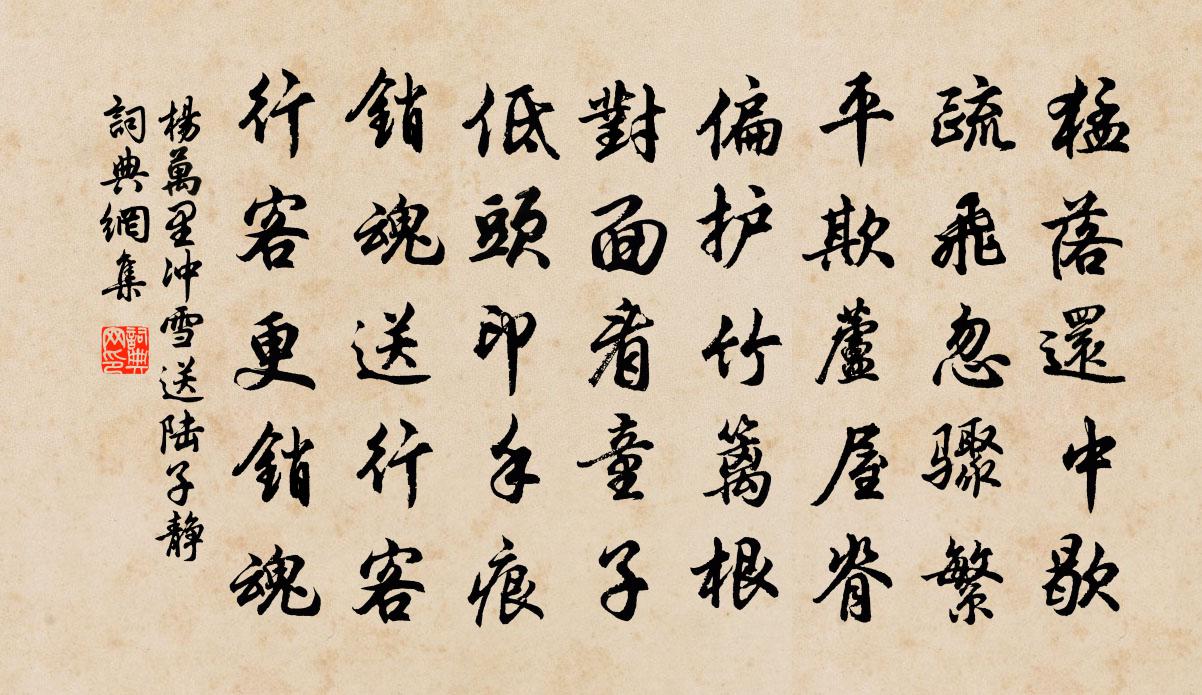 猛落還中歇
疏飛忽驟繁
平欺蘆屋脊
偏护竹篱根
對面看童子
低頭印手痕
銷魂送行客
行客更銷魂
楊萬里冲雪送陆子静
詞典網集
詞典网印